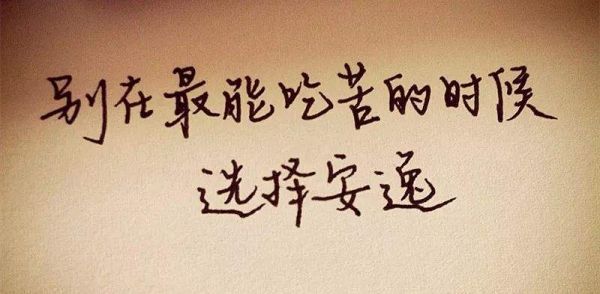 别在最能吃苦的时候
选择安逸